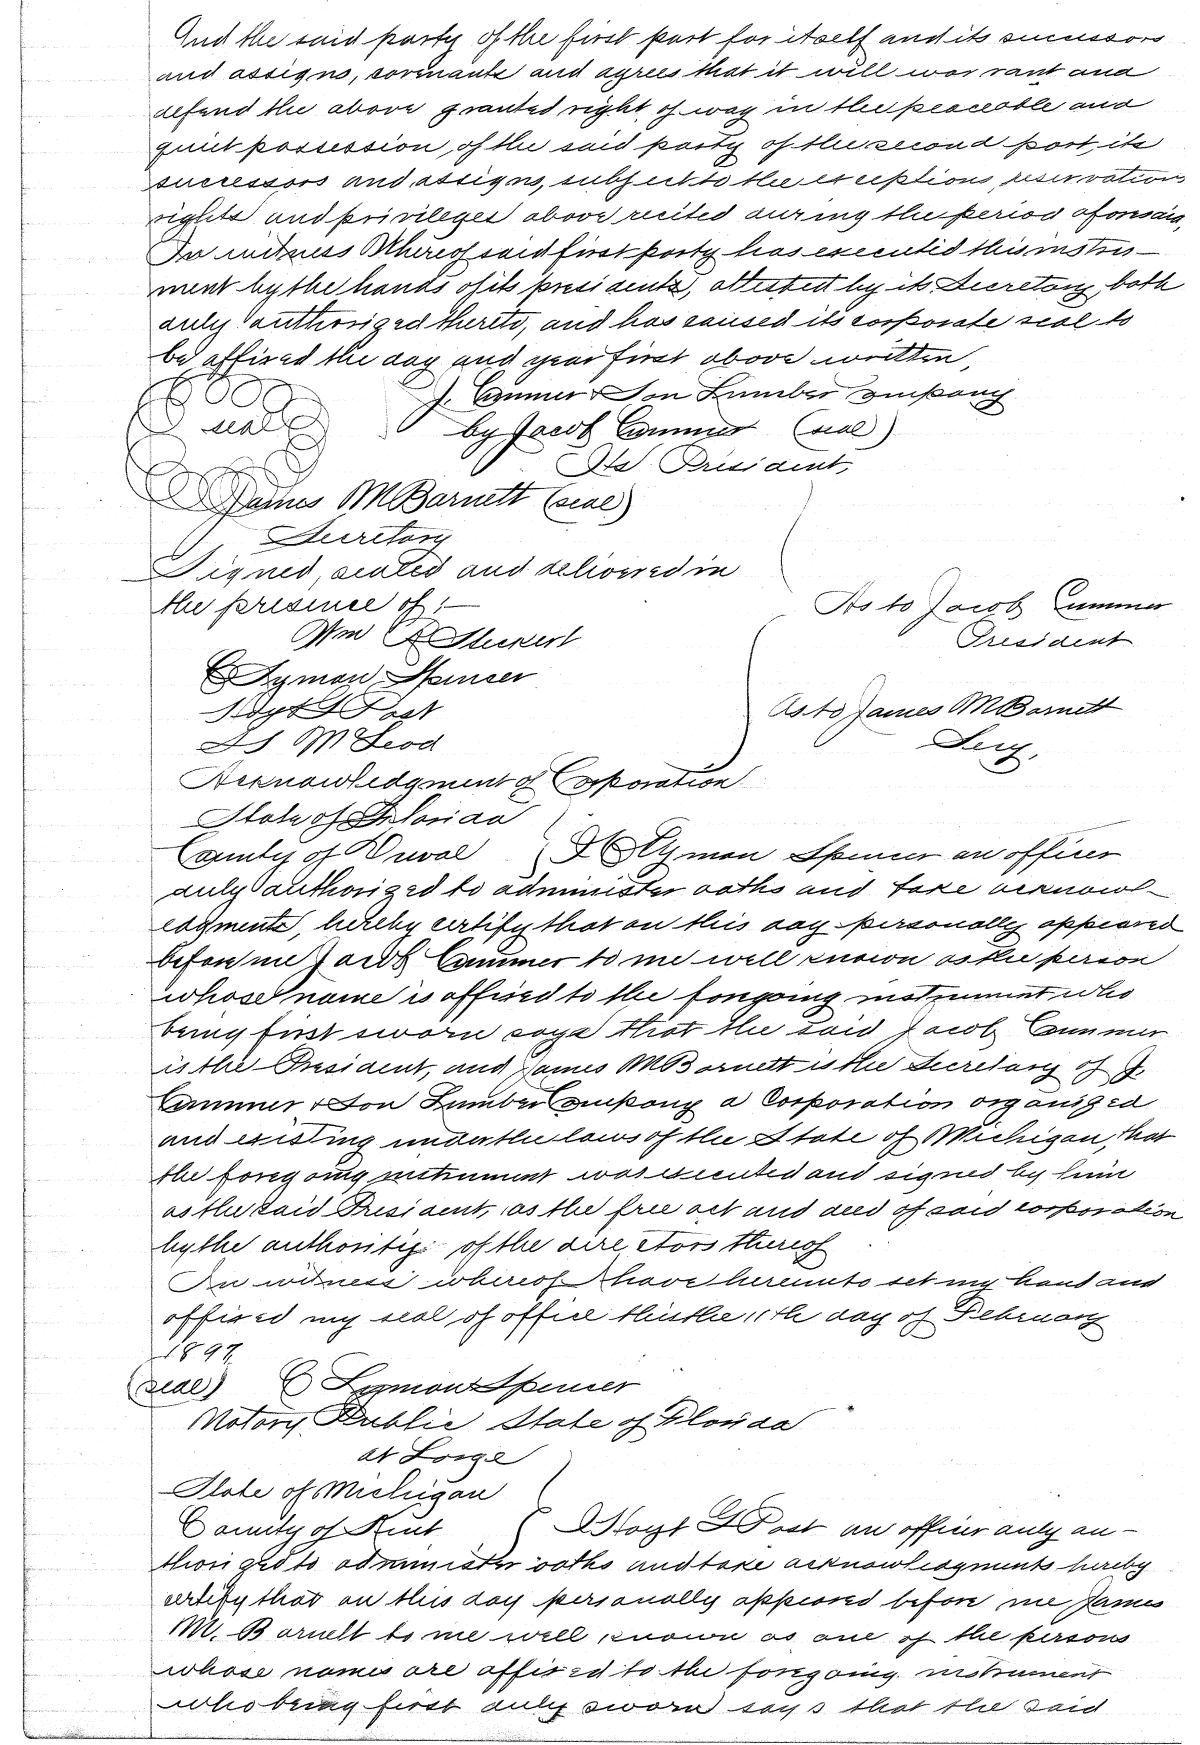 And the said party of the first part for itself and its successors
and assigns, covenants and agrees that it will warrant and
defend the above granted right of way in the peaceable and
quiet possession, of the said party of the second part, its
successors and assigns, subject to the exceptions, reservations
rights and privileges above recited during the period aforesaid,
In witness Whereof said first party has executed this instru-
ment by the hands of its presidents, attested by its Secretary, both
duly authorized thereto, and has caused its corporate seal to
be affixed the day and year first above written,
J. Cummer & Son Lumber Company
seal
by Jacob Cummer (seal)
Its President,
James M Barnett (seal)
Secretary
Signed, sealed and delivered in
the presence of:—
As to Jacob Cummer
Wm
President
C Lyman Spencer
Hoyt G Post
As to James M Barnett
McLeod
Secy,
Acknowledgment of Corporation
State of Florida
County of Duval I C Lyman Spencer an officer
duly authorized to administer oaths and take acknowl-
edgments, hereby certify that on this day personally appeared
before me Jacob Cummer to me well known as the person
whose name is affixed to the foregoing instrument who
being first sworn says that the said Jacob Cummer
is the President, and James M Barnett is the Secretary of J.
Cummer & Son Lumber Company a Corporation organized
and existing under the laws of the State of Michigan, that
the foregoing instrument was executed and signed by him
as the said President, as the free act and deed of said corporation
by the authority of the directors thereof
In witness whereof I have hereunto set my hand and
affixed my seal of office this the 11th day of February
1897
(seal) C Lyman Spencer
Notary Public State of Florida
at Large
State of Michigan
County of Kent I Hoyt G Post an officer duly au-
thorized to administer oaths and take acknowledgments hereby
certify that on this day personally appeared before me James
M. Barnett to me well known as one of the persons
whose names are affixed to the foregoing instrument
who being first duly sworn says that the said